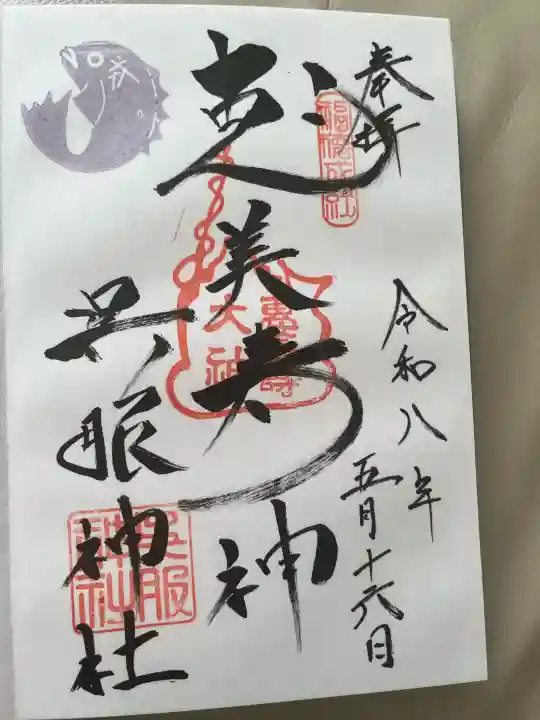 奉拝
福徳戎社
令和八年
五月十六日
恵美寿神
恵美寿
大神
呉服神社
呉服
神社
戎